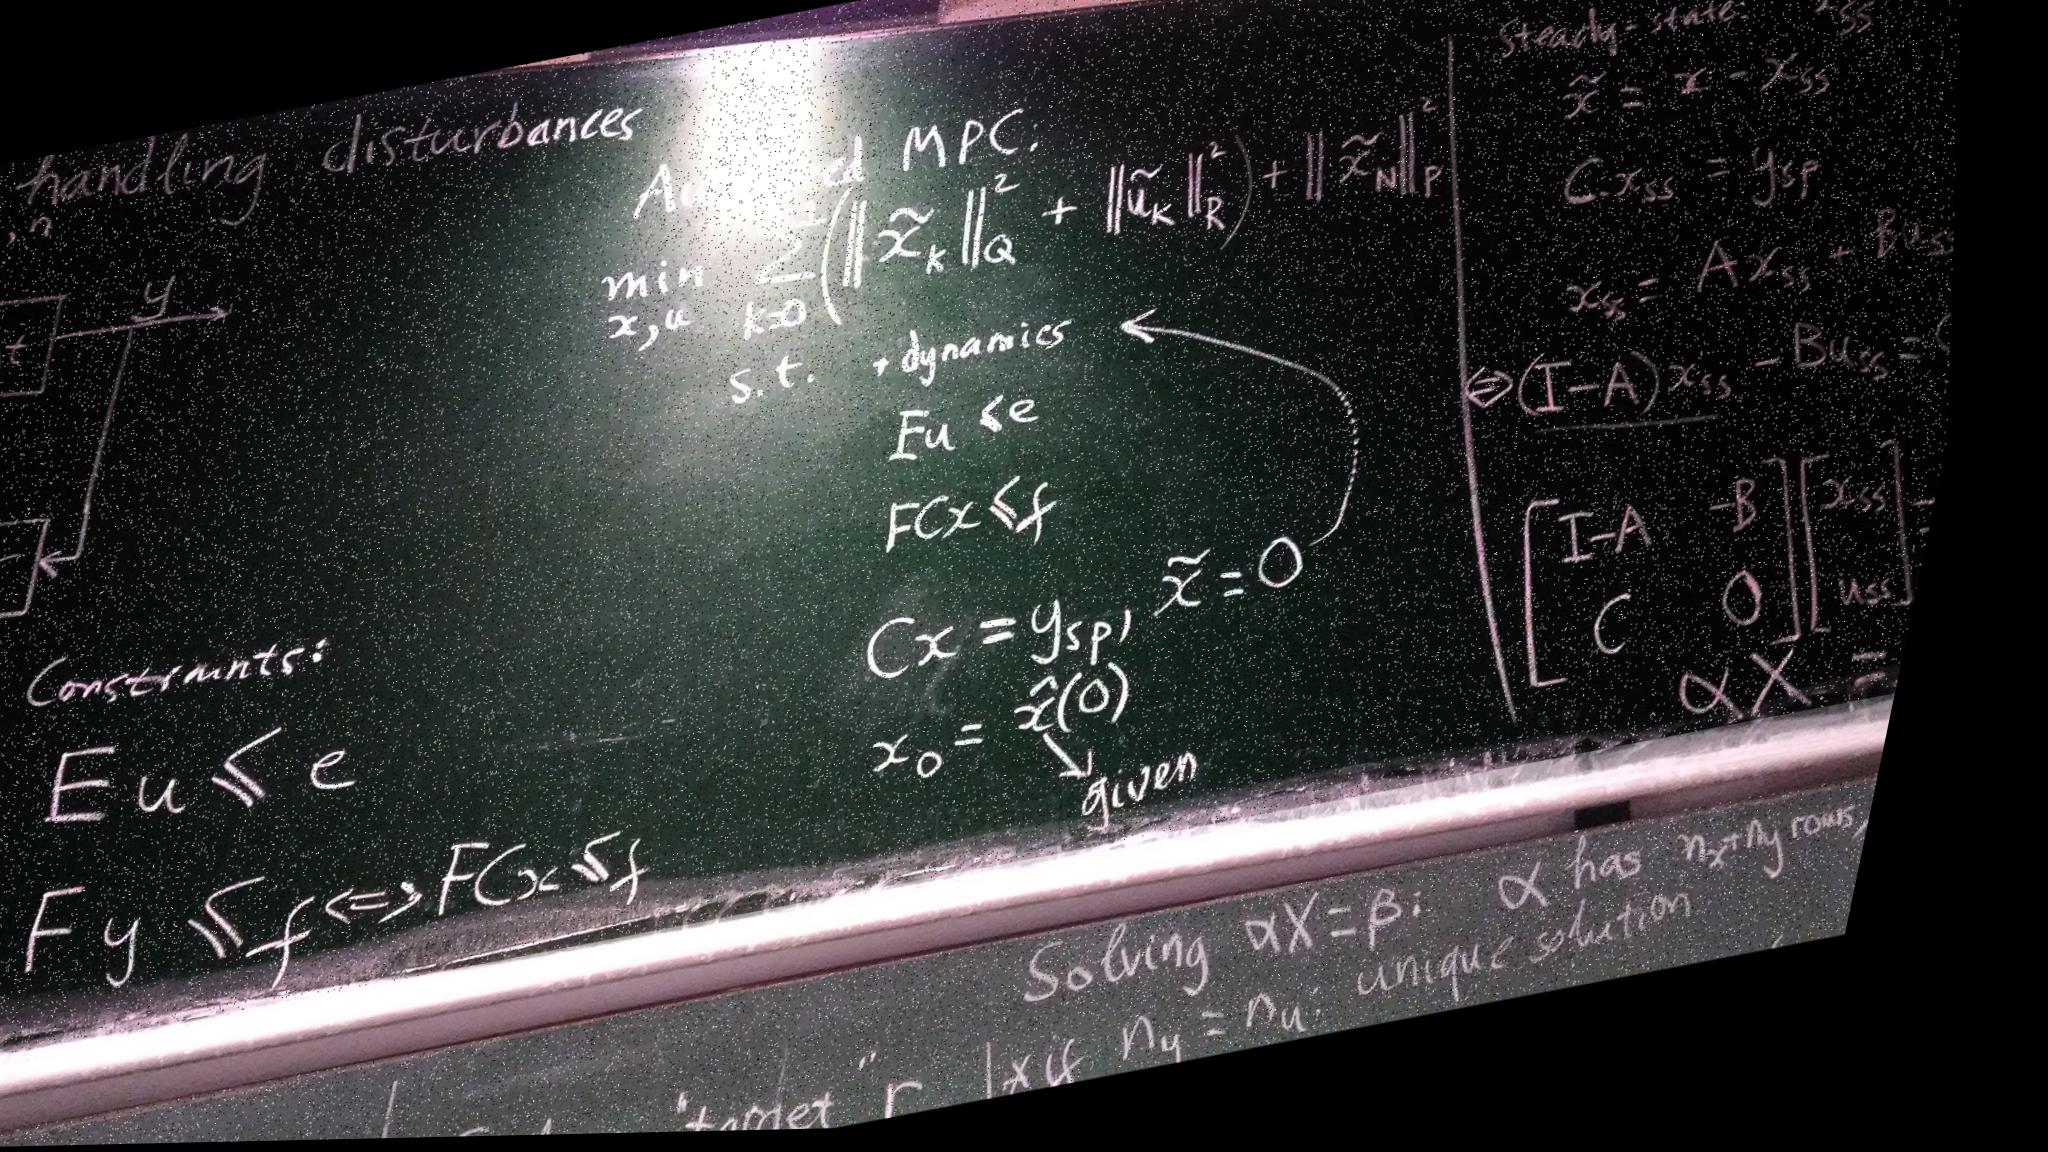 handling disturbances
, n
y
t
Constraints:
Eu ⩽ e
Fy ⩽ f <=> FCx ⩽ f
MPC:
min Σ (‖x̃_k‖²_Q + ‖ũ_K‖²_R) + ‖x̃_N‖²_P
x,u k=0
s.t. • dynamics
Eu ⩽ e
FCx ⩽ f
Cx = y_sp, x̃ = 0
x_0 = x̂(0)
given
Steady-state: x_ss
x̃ = x - x_ss
C.x_ss = y_sp
x_ss = Ax_ss + Bu_ss
⇔ (I-A)x_ss - Bu_ss =
[I-A -B] [x_ss]
[C 0] [u_ss]
αX =
Solving αX = β: α has n_x+n_y rows,
* if n_y = n_u: unique solution
"target" r